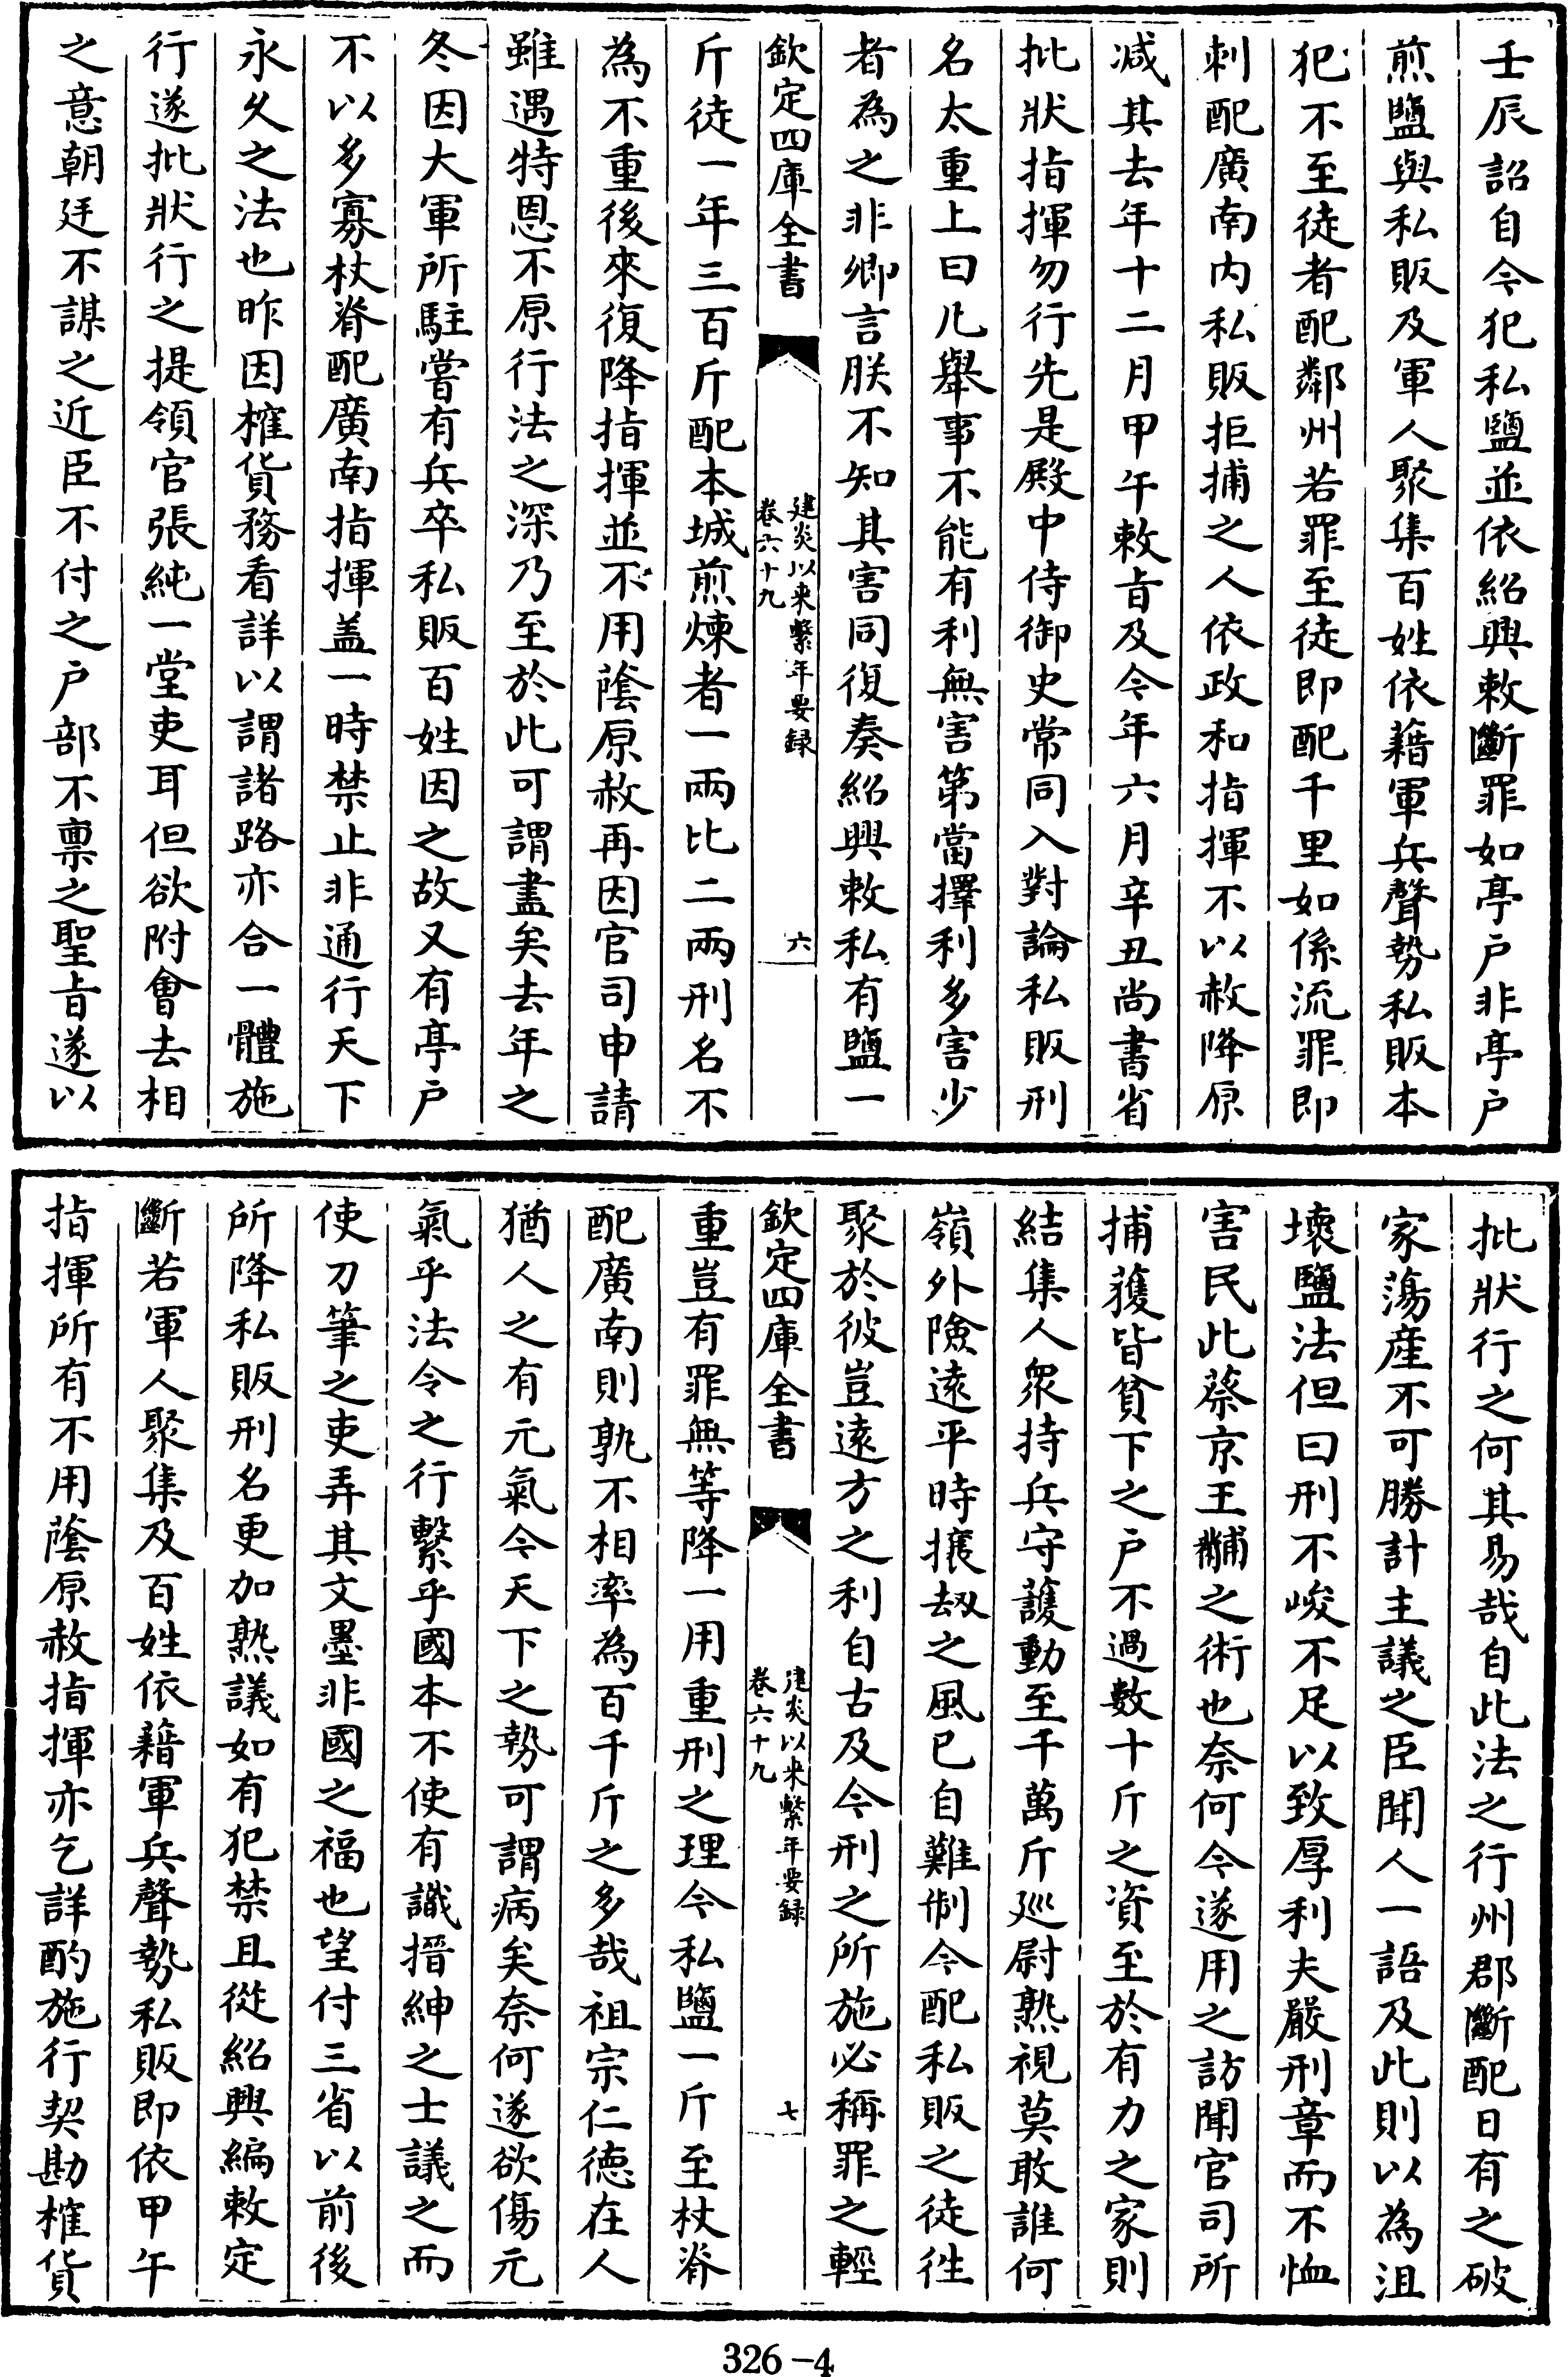 壬辰詔自今犯私鹽並依紹興敕斷罪如亭户非亭户
煎鹽與私販及軍人聚集百姓依藉軍兵聲勢私販本
犯不至徒者配鄰州若罪至徒即配千里如係流罪即
刺配廣南内私販拒捕之人依政和指揮不以赦降原
减其去年十二月甲午敕㫖及今年六月辛丑尚書省
批狀指揮勿行先是殿中侍御史常同入對論私販刑
名太重上曰凡舉事不能有利無害第當擇利多害少
者為之非卿言朕不知其害同復奏紹興敕私有鹽一
欽定四庫全書
建炎以来繫年要録
卷六十九
六
斤徒一年三百斤配本城煎煉者一兩比二兩刑名不
為不重後來復降指揮並不用蔭原赦再因官司申請
雖遇特恩不原行法之深乃至於此可謂盡矣去年之
冬因大軍所駐嘗有兵卒私販百姓因之故又有亭户
不以多寡杖脊配廣南指揮盖一時禁止非通行天下
永久之法也昨因榷貨務看詳以謂諸路亦合一體施
行遂批狀行之提領官張純一堂吏耳但欲附㑹去相
之意朝廷不謀之近臣不付之户部不禀之聖㫖遂以
批狀行之何其易哉自此法之行州郡斷配日有之破
家蕩産不可勝計主議之臣聞人一語及此則以為沮
壞鹽法但曰刑不峻不足以致厚利夫嚴刑章而不恤
害民此蔡京王黼之術也奈何今遂用之訪聞官司所
捕獲皆貧下之户不過數十斤之資至於有力之家則
結集人衆持兵守護動至千萬斤廵尉熟視莫敢誰何
嶺外險遠平時攘刼之風已自難制今配私販之徒徃
聚於彼豈遠方之利自古及今刑之所施必稱罪之輕
欽定四庫全書
建炎以来繫年要録
卷六十九
七
重豈有罪無等降一用重刑之理今私鹽一斤至杖脊
配廣南則孰不相率為百千斤之多哉祖宗仁徳在人
猶人之有元氣今天下之勢可謂病矣奈何遂欲傷元
氣乎法令之行繫乎國本不使有識搢紳之士議之而
使刀筆之吏弄其文墨非國之福也望付三省以前後
所降私販刑名更加熟議如有犯禁且從紹興編敕定
斷若軍人聚集及百姓依藉軍兵聲勢私販即依甲午
指揮所有不用蔭原赦指揮亦乞詳酌施行契勘榷貨
326-4